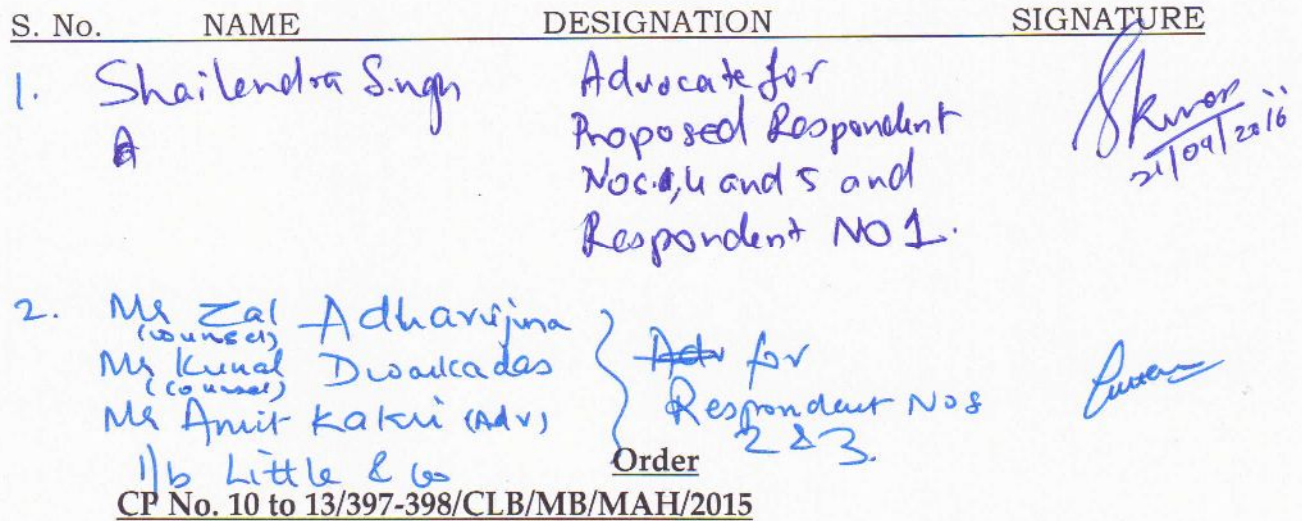 S. No. NAME DESIGNATION SIGNATURE
1. Shailendra Singh Advocate for
Proposed Respondent
Nos. 4 and 5 and
Respondent NO 1.
21/09/2016
2. Mr Zal
(counsel)
Mr Kunal Dwarkadas
(counsel)
Mr Amit (Adv)
i/b Little & Co
Adv for
Respondent Nos
2 & 3.
Order
CP No. 10 to 13/397-398/CLB/MB/MAH/2015